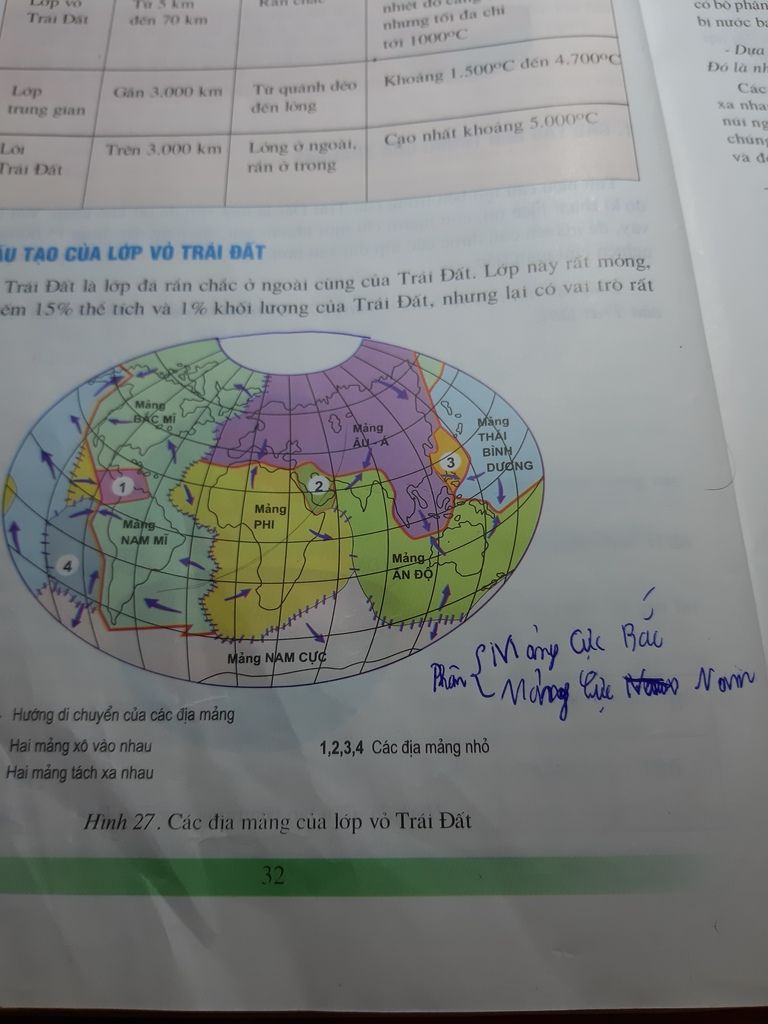 Lớp vỏ
Trái Đất
Từ 5 km
đến 70 km
Rắn chắc
nhưng tối đa chỉ
tới 1000°C
Lớp
trung gian
Gần 3.000 km
Từ quánh dẻo
đến lỏng
Khoảng 1.500°C đến 4.700°C
Lõi
Trái Đất
Trên 3.000 km
Lỏng ở ngoài,
rắn ở trong
Cao nhất khoảng 5.000°C
ẤU TẠO CỦA LỚP VỎ TRÁI ĐẤT
Trái Đất là lớp đá rắn chắc ở ngoài cùng của Trái Đất. Lớp này rất mỏng,
15% thể tích và 1% khối lượng của Trái Đất, nhưng lại có vai trò rất
Mảng
BẮC MĨ
Mảng
ÂU - Á
Mảng
THÁI
BÌNH
DƯƠNG
1
2
3
Mảng
PHI
Mảng
NAM MĨ
4
Mảng
ẤN ĐỘ
Mảng NAM CỰC
Phân
Mảng Cực Bắc
Mảng Cực Nam
Hướng di chuyển của các địa mảng
Hai mảng xô vào nhau
Hai mảng tách xa nhau
1,2,3,4 Các địa mảng nhỏ
Hình 27. Các địa mảng của lớp vỏ Trái Đất
32
có bộ phận
bị nước
- Dựa
Đó là
Các
xa
núi
chúng
và